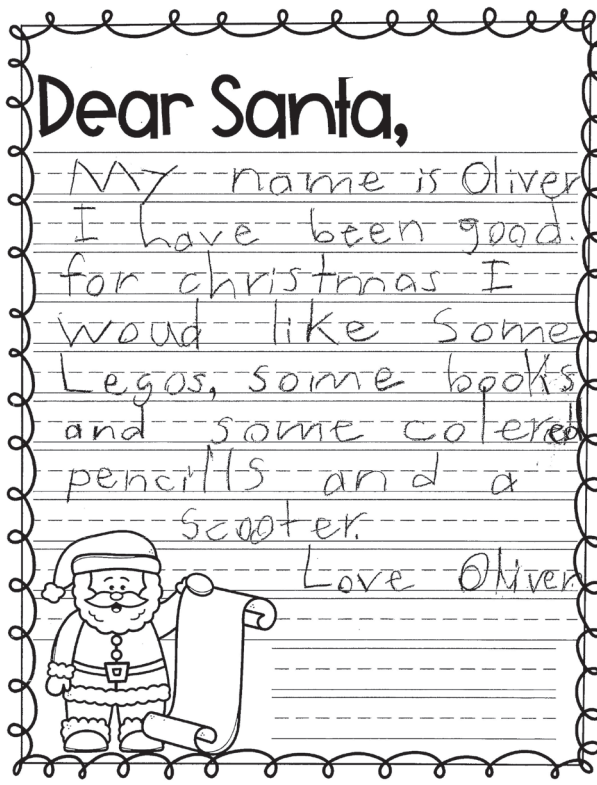 Dear Santa,
My name is Oliver
I have been good.
for christmas I
woud like Some
Legos, some books
and some colered
pencills and a
scooter.
Love Oliver